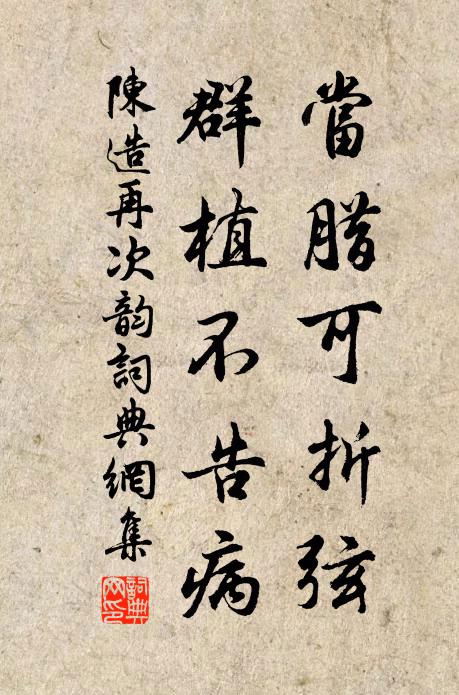 當腊可折弦
群植不告病
陳造再次韵詞典網集
詞典网印